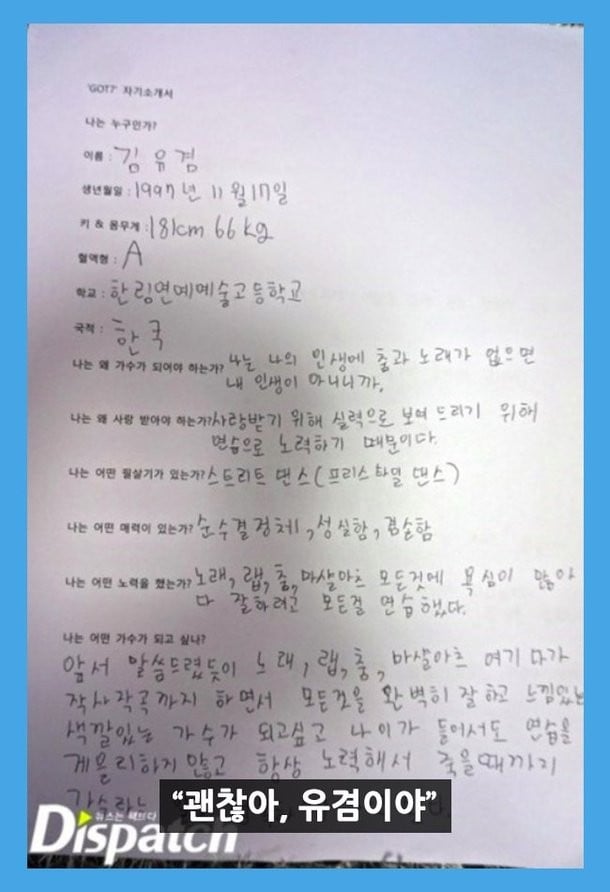 'GOT7' 자기소개서
나는 누구인가?
이름 : 김유겸
생년월일 : 1997년 11월17일
키 & 몸무게 : 181cm 66kg
혈액형 : A
학교 : 한림연예예술고등학교
국적 : 한국
나는 왜 가수가 되어야 하는가? 나는 나의 인생에 춤과 노래가 없으면
내 인생이 아니니까,
나는 왜 사랑 받아야 하는가? 사랑받기 위해 실력으로 보여 드리기 위해
연습으로 노력하기 때문이다.
나는 어떤 필살기가 있는가? 스트리트 댄스(프리스타일 댄스)
나는 어떤 매력이 있는가? 순수결정체, 성실함, 겸손함
나는 어떤 노력을 했는가? 노래, 랩, 춤, 마샬아츠 모든것에 욕심이 많아
다 잘하려고 모든걸 연습했다.
나는 어떤 가수가 되고 싶나?
앞서 말씀드렸듯이 노래, 랩, 춤, 마샬아츠 여기다가
작사작곡까지 하면서 모든것을 완벽히 잘하고 느낌있는
색깔있는 가수가 되고싶고 나이가 들어서도 연습을
게을리하지않고 항상 노력해서 죽을때까지
가수라는
"괜찮아, 유겸이야"
뉴스는 팩트다
Dispatch